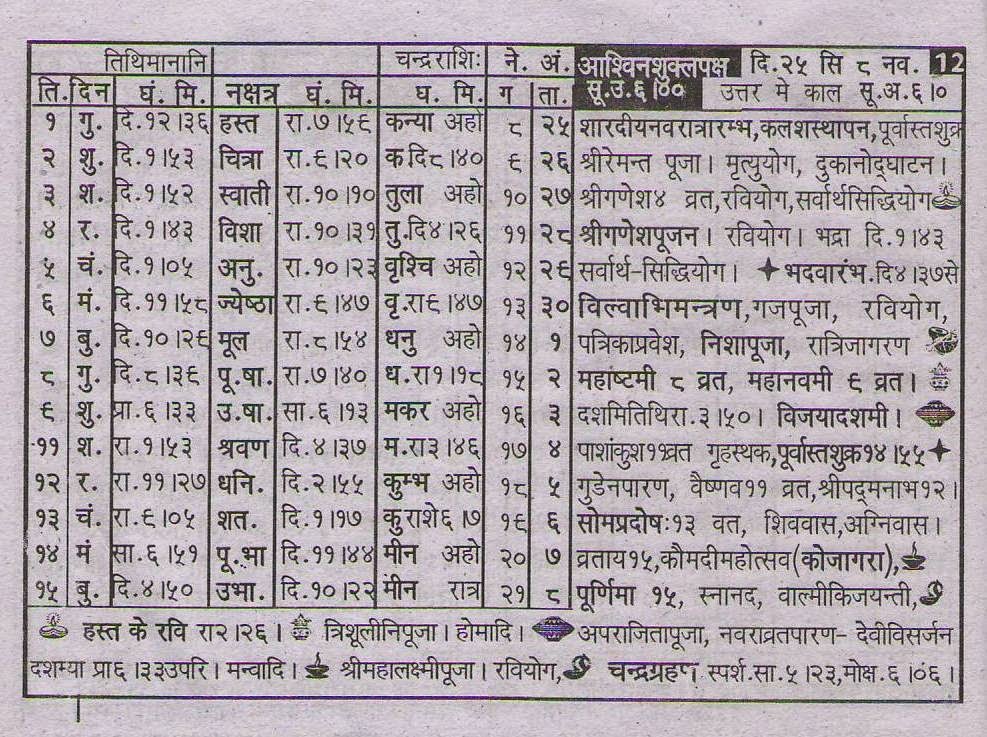 तिथिमानानि चन्द्रराशिः ने. अं. आश्विनशुक्लपक्ष दि.२५ सि ८ नव. 12
ति. दिन घं. मि. नक्षत्र घं. मि. घ. मि. ग ता. सू.उ.६।०० उत्तर मे काल सू.अ.६।०
१ गु. दि.१२।३६ हस्त रा.७।५९ कन्या अहो ८ २५ शारदीयनवरात्रारम्भ,कलशस्थापन,पूर्वास्तशुक्र
२ शु. दि.१।५३ चित्रा रा.९।२० क दि८।४० ९ २६ श्रीरेमन्त पूजा। मृत्युयोग, दुकानोद्घाटन।
३ श. दि.१।५२ स्वाती रा.१०।१० तुला अहो १० २७ श्रीगणेश४ व्रत,रवियोग,सर्वार्थसिद्धियोग
४ र. दि.१।४३ विशा रा.१०।३१ तु.दि४।२६ ११ २८ श्रीगणेशपूजन। रवियोग। भद्रा दि.१।४३
५ चं. दि.१।०५ अनु. रा.१०।२३ वृश्चि अहो १२ २९ सर्वार्थ-सिद्धियोग। भदवारंभ.दि४।३७से
६ मं. दि.११।५८ ज्येष्ठा रा.९।४७ वृ.रा९।४७ १३ ३० विल्वाभिमन्त्रण,गजपूजा, रवियोग,
७ बु. दि.१०।२९ मूल रा.८।५४ धनु अहो १४ १ पत्रिकाप्रवेश, निशापूजा, रात्रिजागरण
८ गु. दि.८।३९ पू.षा. रा.७।४० ध.रा१।१८ १५ २ महाष्टमी ८ व्रत, महानवमी ९ व्रत।
९ शु. प्रा.६।३३ उ.षा. सा.६।१३ मकर अहो १६ ३ दशमितिथिरा.३।५०। विजयादशमी।
११ श. रा.१।५३ श्रवण दि.४।३७ म.रा३।४६ १७ ४ पाशांकुश११व्रत गृहस्थक,पूर्वास्तशुक्र१४।५५
१२ र. रा.११।२७ धनि. दि.२।५५ कुम्भ अहो १८ ५ गुडेनपारण, वैष्णव११ व्रत,श्रीपद्मनाभ१२।
१३ चं. रा.९।०५ शत. दि.१।१७ कु राशे६।७ १९ ६ सोमप्रदोषः१३ वत, शिववास,अग्निवास।
१४ मं सा.६।५१ पू.भा दि.११।४४ मीन अहो २० ७ व्रताय१५,कौमदीमहोत्सव(कोजागरा),
१५ बु. दि.४।५० उभा. दि.१०।२२ मीन रात्र २१ ८ पूर्णिमा १५, स्नानद, वाल्मीकिजयन्ती,
हस्त के रवि रा२।२६। त्रिशूलीनिपूजा। होमादि। अपराजितापूजा, नवराव्रतपारण- देवीविसर्जन
दशम्या प्रा६।३३उपरि। मन्वादि। श्रीमहालक्ष्मीपूजा। रवियोग, चन्द्रग्रहण स्पर्श.सा.५।२३,मोक्ष.६।०६।